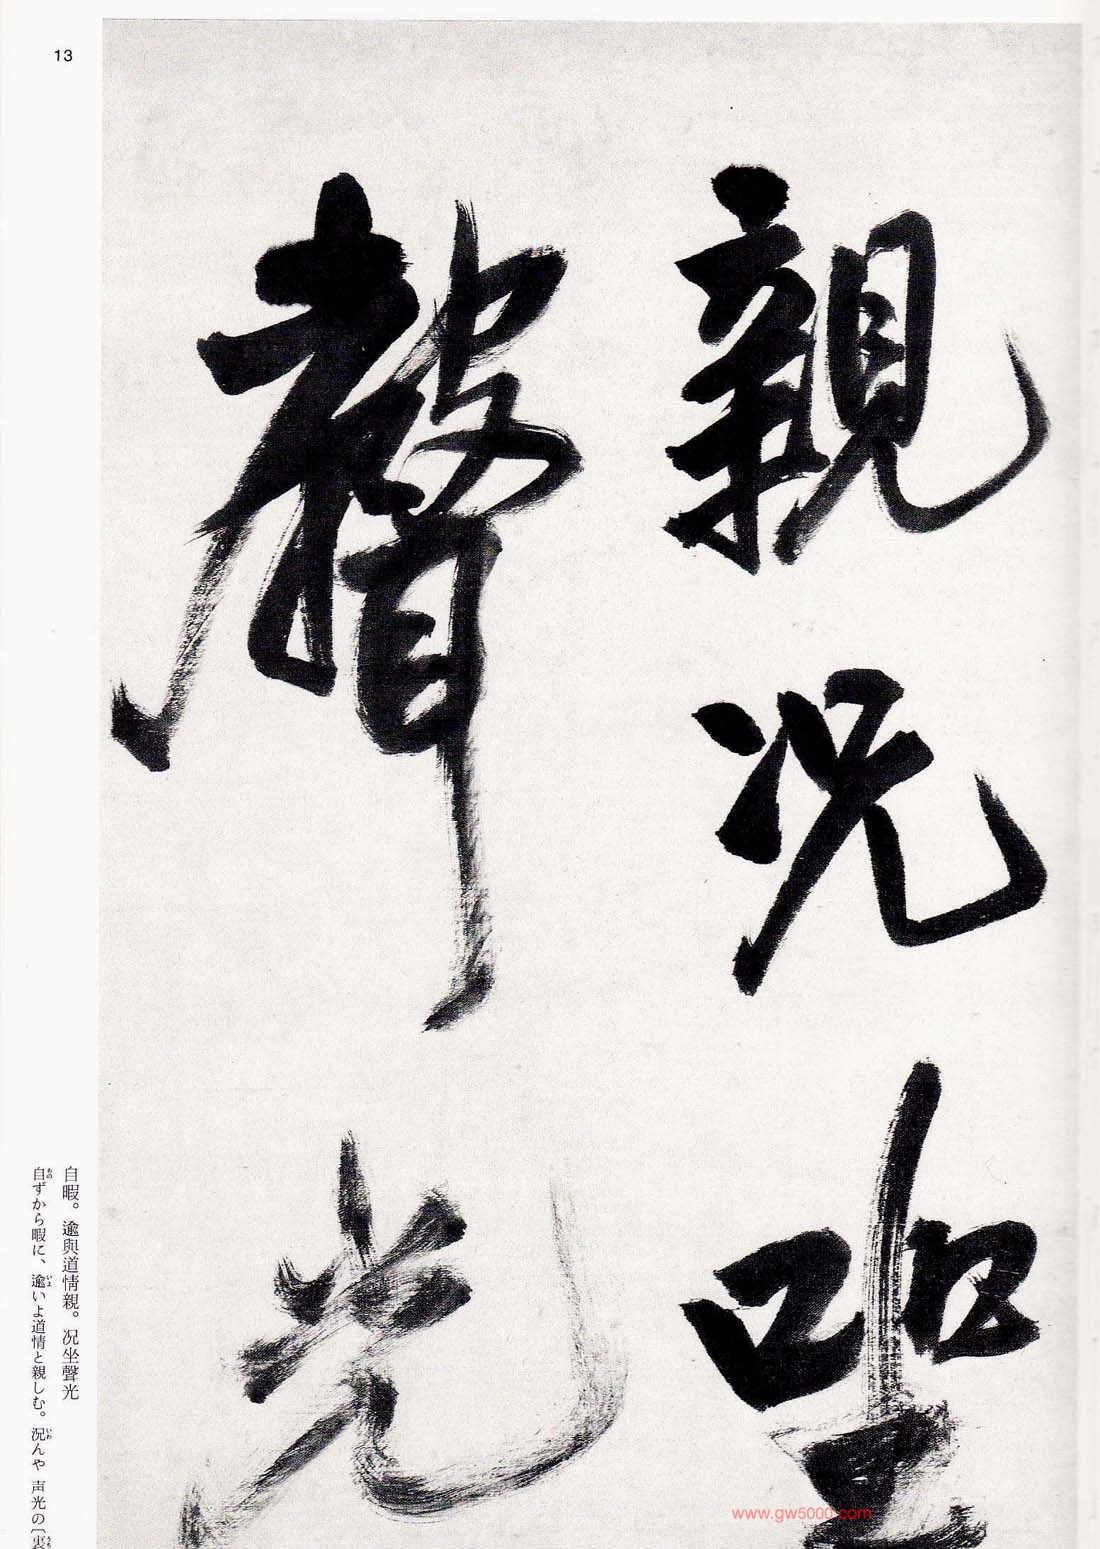 13
親況坐
聲光
自暇。逾與道情親。況坐聲光
自ずから暇に、逾いよ道情と親しむ。況んや 声光の〔裏
www.gw5000.com